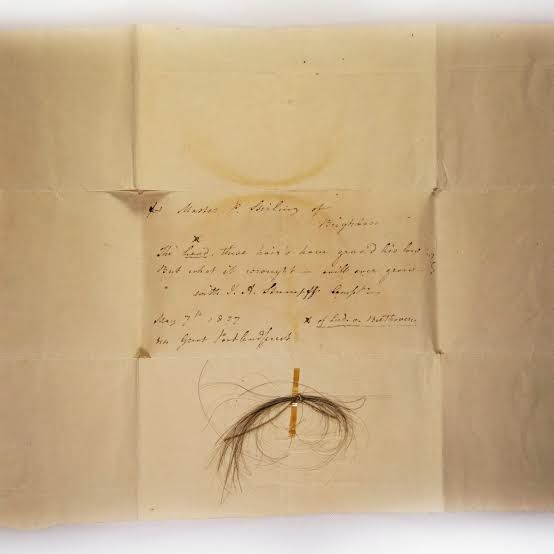 for Master P. Stirling of
Brighton
x
The Head, these hair's have grac'd lies low
But what it wrought – will ever grow –
with J. A. Stumpff Compts
May 7th 1827 x of Lud. v. Beethoven
Great Portlandstreet